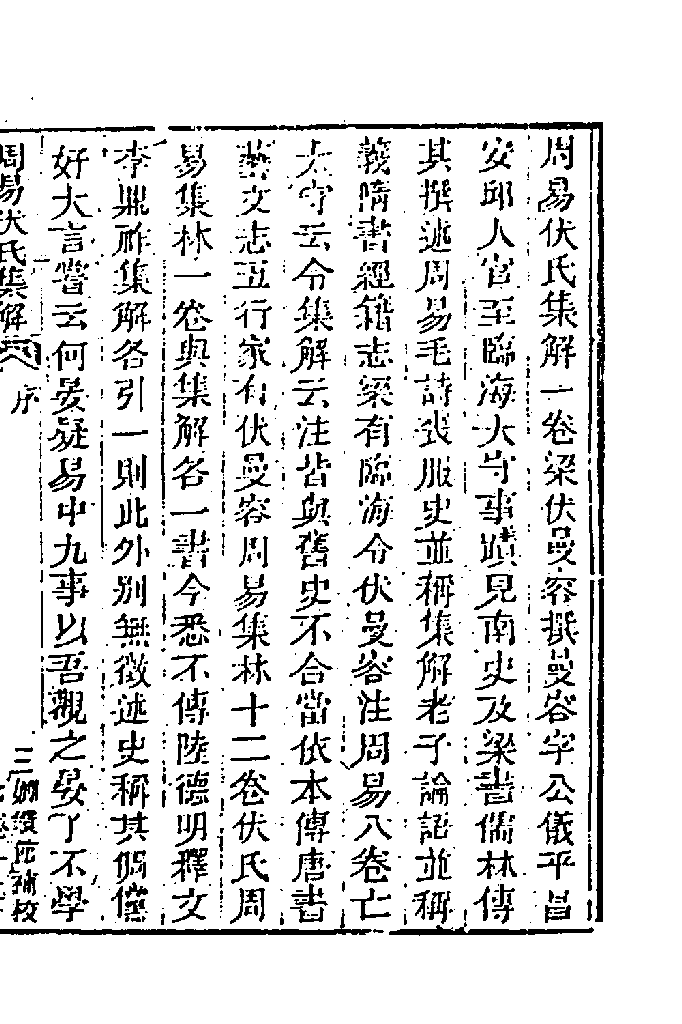 周易伏氏集解一卷梁伏曼容撰曼容字公儀平昌
安邱人官至臨海太守事蹟見南史及梁書儒林傳
其撰述周易毛詩喪服史並稱集解老子論語並稱
義隋書經籍志梁有臨海令伏曼容注周易八卷亡
太守云令集解云注皆與舊史不合當依本傳唐書
藝文志五行家有伏曼容周易集林十二卷伏氏周
易集林一卷與集解各一書今悉不傳陸德明釋文
李鼎祚集解各引一則此外別無徵述史稱其倜儻
好大言嘗云何晏疑易中九事以吾觀之晏了不學
周易伏氏集解 序 三 嫏嬛館補校